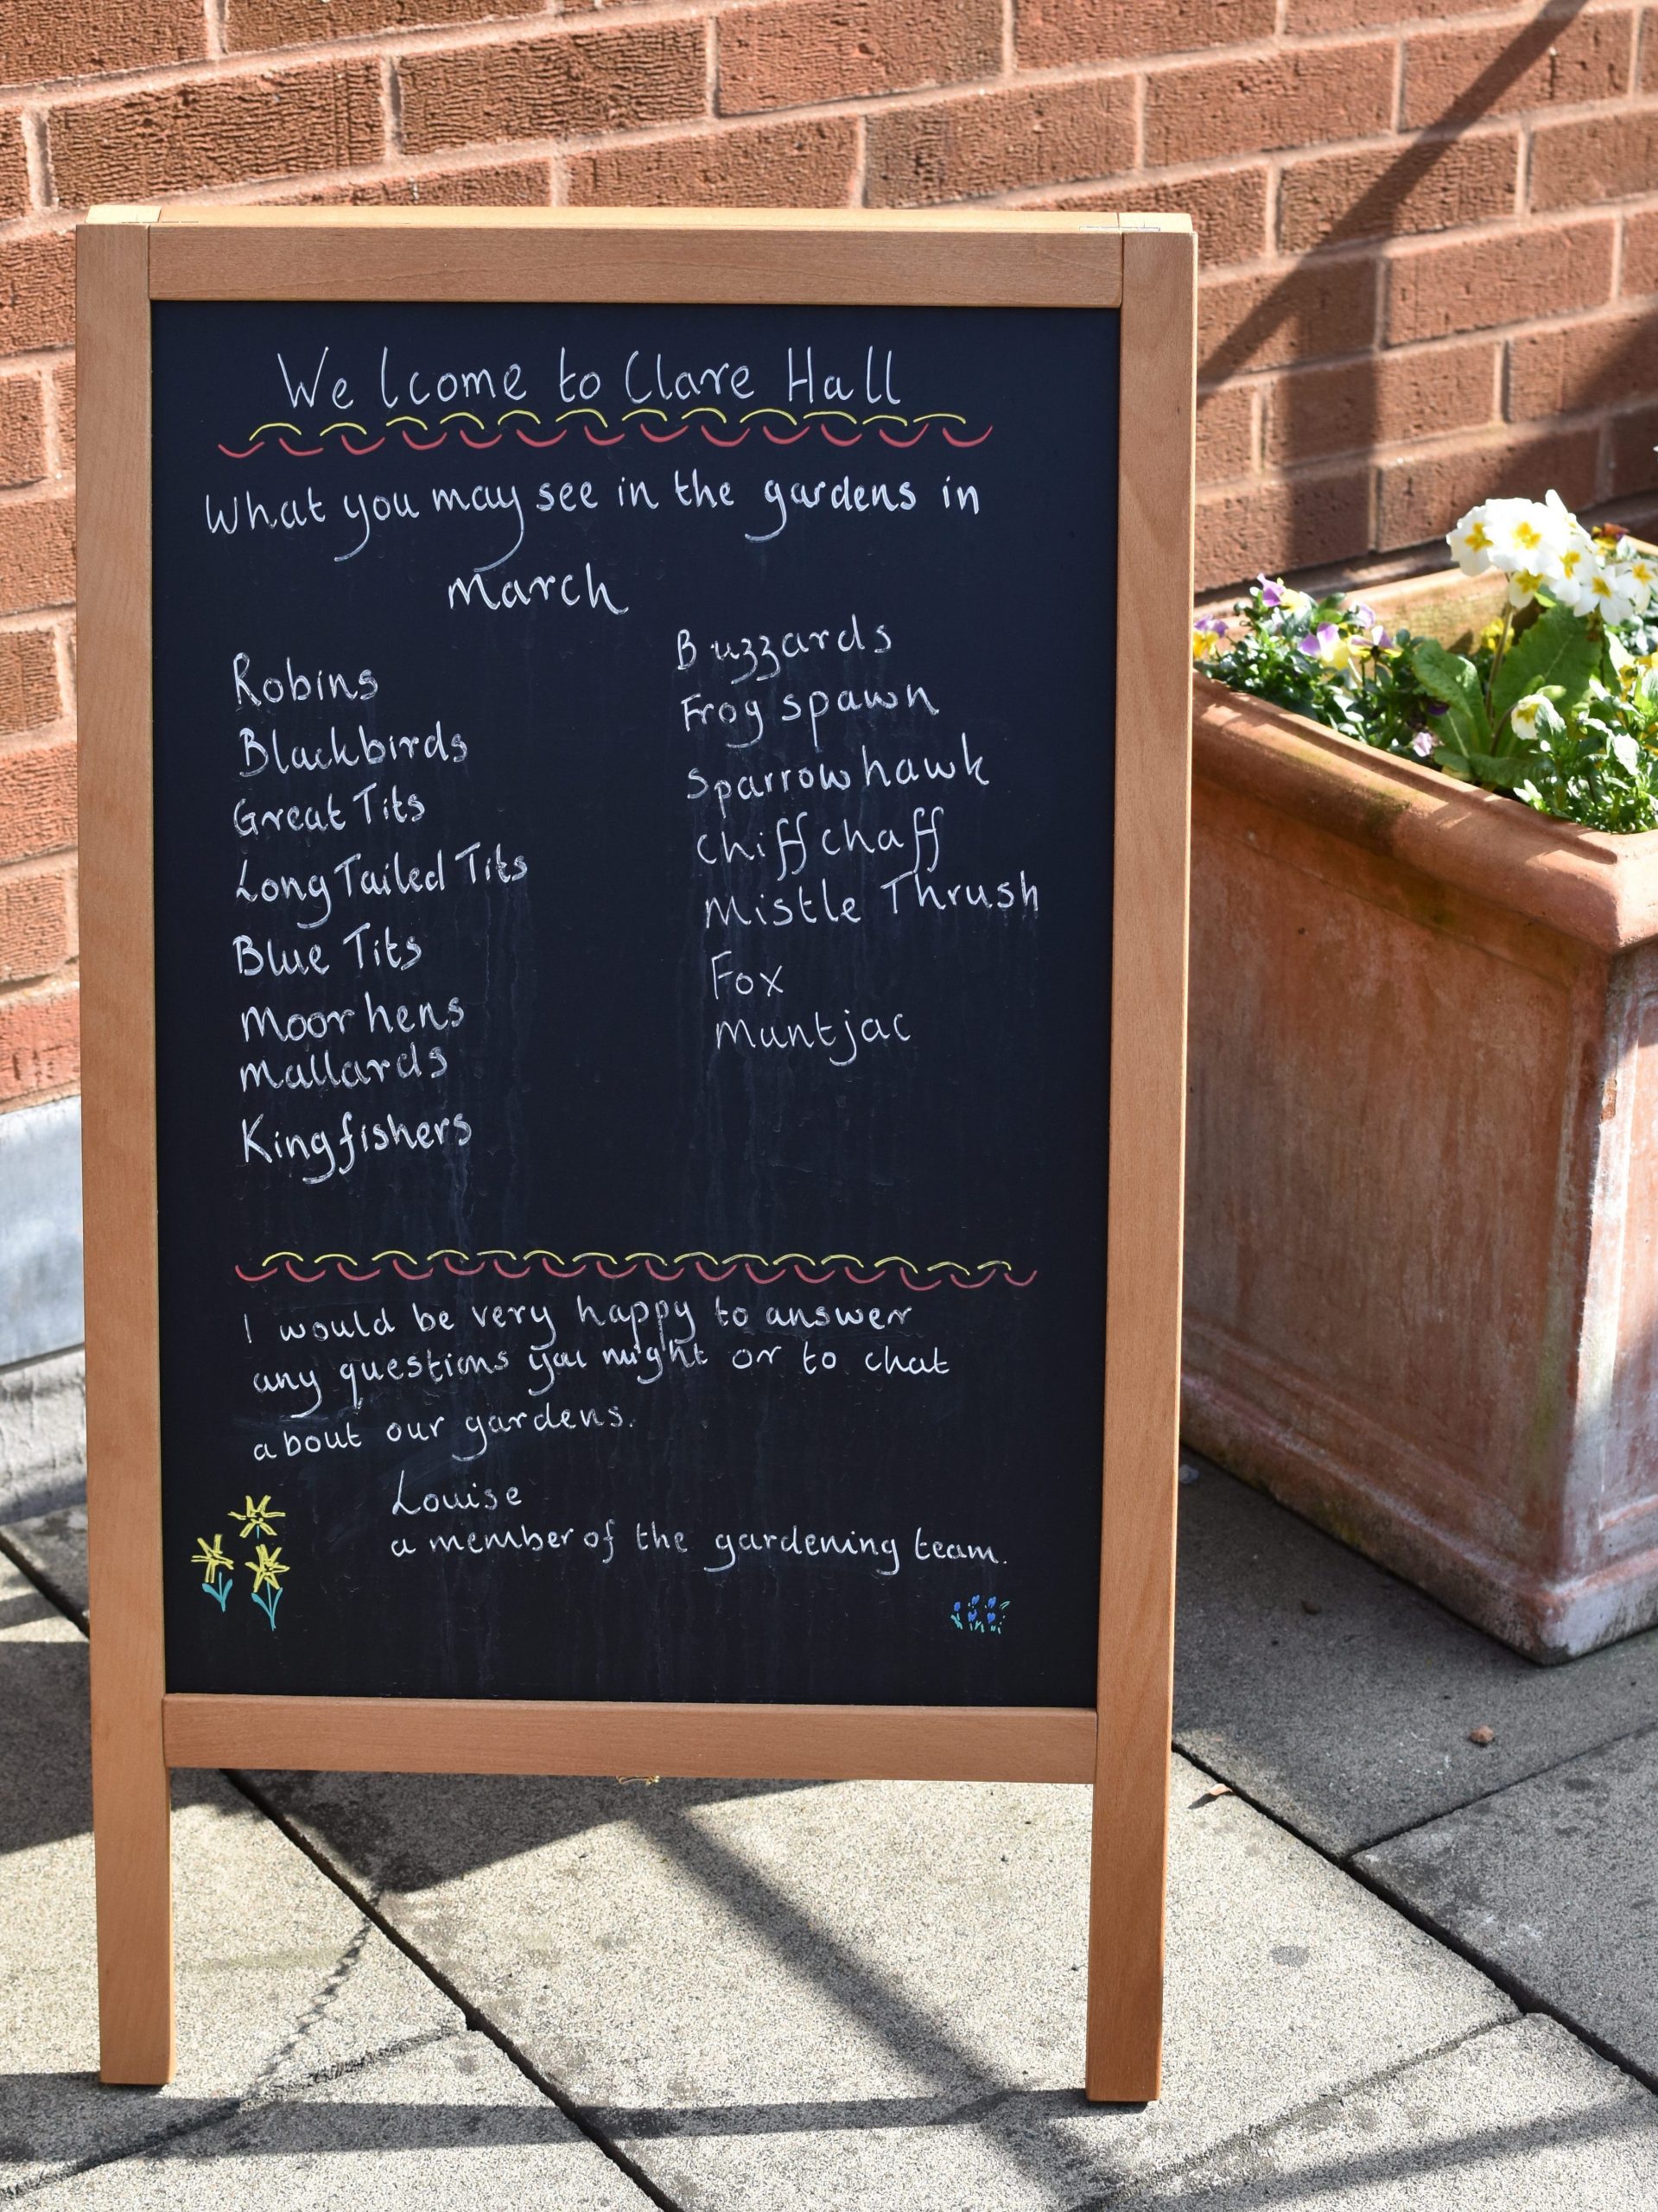 Welcome to Clare Hall
What you may see in the gardens in
March
Robins
Blackbirds
Great Tits
Long Tailed Tits
Blue Tits
Moorhens
Mallards
Kingfishers
Buzzards
Frog spawn
Sparrow hawk
Chiffchaff
Mistle Thrush
Fox
Muntjac
I would be very happy to answer
any questions you might or to chat
about our gardens.
Louise
a member of the gardening team.